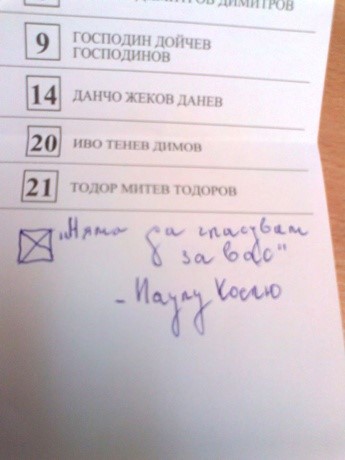 ДИМИТРОВ
9 ГОСПОДИН ДОЙЧЕВ
ГОСПОДИНОВ
14 ДАНЧО ЖЕКОВ ДАНЕВ
20 ИВО ТЕНЕВ ДИМОВ
21 ТОДОР МИТЕВ ТОДОРОВ
„Няма да гласувам
за вас"
- Паулу Коелю